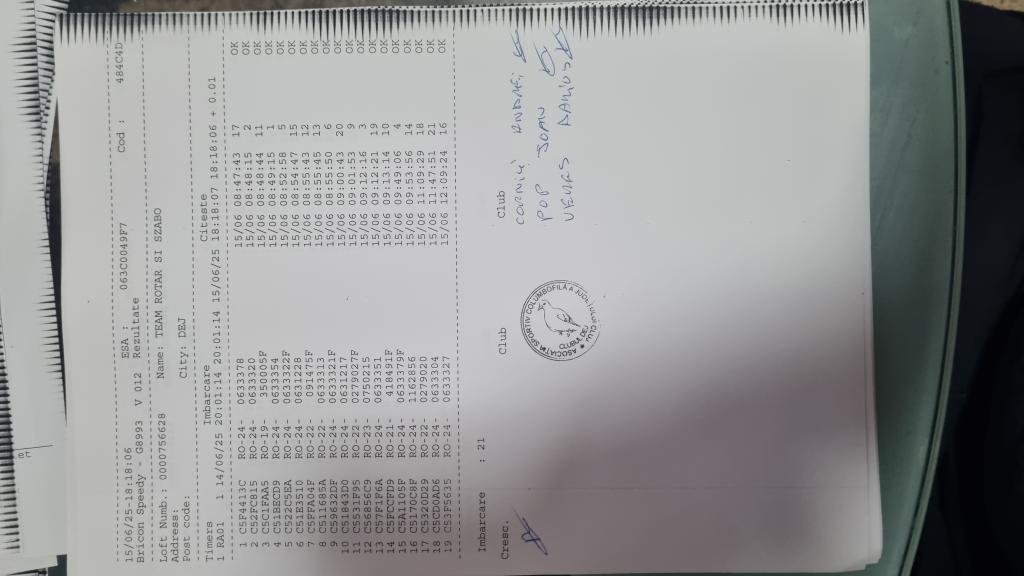 15/06/25-18:18:06 ESA : 063C0049F7 Cod : 484C4D
Bricon Speedy - G8993 V 012 Rezultate
Loft Numb.: 0000756628 Name: TEAM ROTAR SI SZABO
Address:
Post code: City: DEJ
Timers Imbarcare Citeste
1 RA01 1 14/06/25 20:01:14 20:01:14 15/06/25 18:18:07 18:18:06 + 0.01
1 C5F4413C RO-24- 0633378 15/06 08:47:43 17 OK
2 C522FC815 RO-24- 0633320 15/06 08:48:15 2 OK
3 C5C1FAA5 RO-19- 350005F 15/06 08:48:44 11 OK
4 C51BECD9 RO-24- 0633354 15/06 08:49:15 1 OK
5 C522C5EA RO-24- 0633322F 15/06 08:52:58 5 OK
6 C51E3510 RO-24- 0631228 15/06 08:54:47 15 OK
7 C5FFA04F RO-22- 091475F 15/06 08:55:43 12 OK
8 C511685A RO-24- 0633313 15/06 08:55:45 13 OK
9 C59632DF RO-24- 0633321F 15/06 08:55:50 6 OK
10 C51843D0 RO-24- 0631217 15/06 09:00:43 20 OK
11 C5531F95 RO-22- 0279027F 15/06 09:01:53 9 OK
12 C56856C9 RO-23- 0750215 15/06 09:12:16 3 OK
13 C57F1F6A RO-24- 0633351 15/06 09:12:21 19 OK
14 C5FCCFD9 RO-21- 418491F 15/06 09:13:14 10 OK
15 C5A1105F RO-24- 0633379F 15/06 09:49:06 4 OK
16 C5170C8F RO-24- 1162856 15/06 09:53:56 14 OK
17 C5320D29 RO-22- 0279020 15/06 11:09:29 18 OK
18 C5CD0AD6 RO-24- 0633304 15/06 11:47:51 21 OK
19 C53F5635 RO-24- 0633327 15/06 12:09:24 16 OK
Imbarcare : 21
Cresc. Club Club
POP IOAN
ASOCIAȚIA SPORTIV COLUMBOFILĂ A JUDEȚULUI CLUJ
CLUBUL DEJ
et